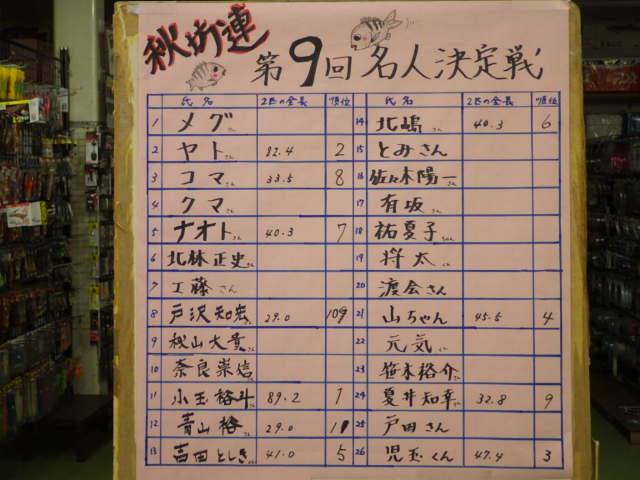 秋坊連
第9回 名人決定戦
氏名 2匹の全長 順位 氏名 2匹の全長 順位
1 メグさん 14 北嶋さん 40.3 6
2 ヤトさん 82.4 2 15 とみさん
3 コマさん 33.5 8 16 佐々木陽一さん
4 クマさん 17 有坂さん
5 ナオトさん 40.3 7 18 祐夏子ちゃん
6 北林正史さん 19 将太くん
7 工藤さん 20 渡会さん
8 戸沢知宏さん 29.0 21 山ちゃん 45.5 4
9 秋山大貴さん 22 元気くん
10 奈良崇信さん 23 笹木裕介さん
11 小玉裕斗さん 89.2 1 24 夏井知幸さん 32.8 9
12 青山裕さん 29.0 25 戸田さん
13 吉田としきさん 41.0 5 26 児玉くん 47.4 3